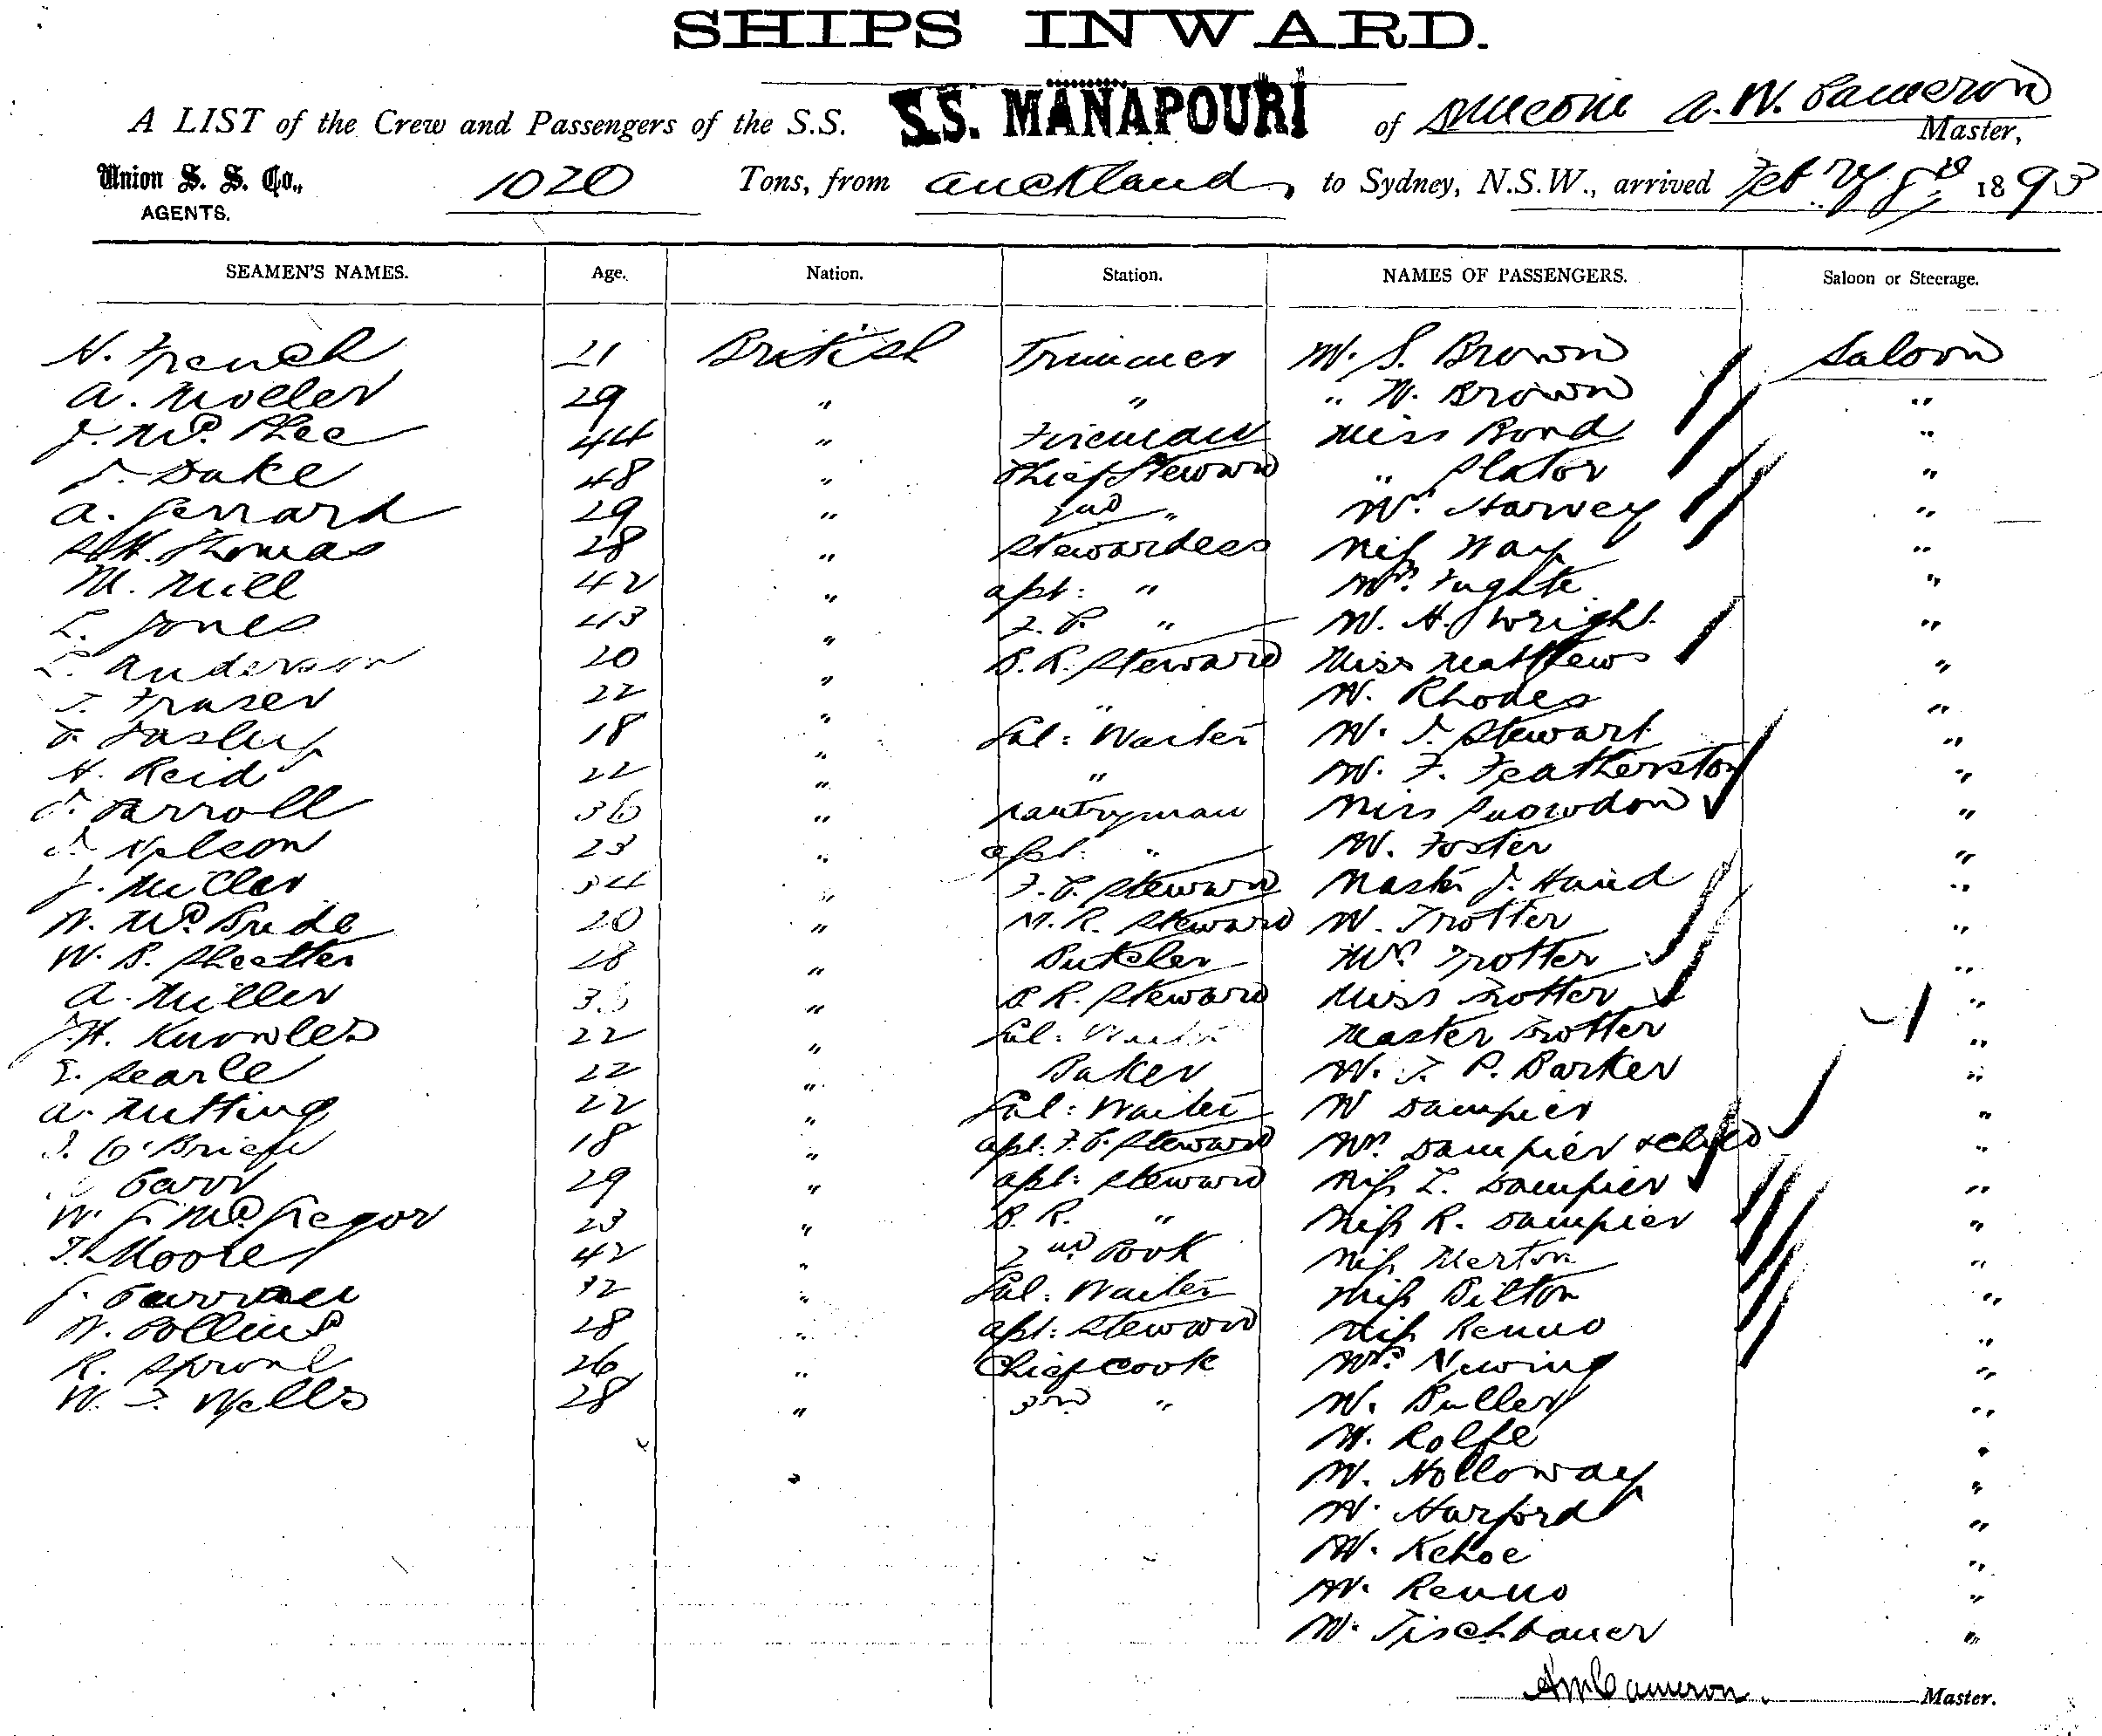 SHIPS INWARD.
A LIST of the Crew and Passengers of the S.S. S.S. MANAPOURI of A. W. Cameron
Master,
Union S. S. Co., 1020 Tons, from Auckland, to Sydney, N.S.W., arrived Feby 8th 1893
AGENTS.
SEAMEN'S NAMES. Age. Nation. Station. NAMES OF PASSENGERS. Saloon or Steerage.
N. French 21 British Trimmer Mr. S. Brown Saloon
A. Moller 29 " " " W. Brown "
J. McPhee 44 " Fireman Miss Bond "
J. Dake 48 " Chief Steward " Slator "
A. Gerrard 29 " 2nd " Mrs. Harvey "
Thomas 28 " Stewardess Miss Way "
M. Mill 42 " asst: " Mrs. "
L. Jones 43 " F. C. " Mr. H. Wright "
L. Anderson 20 " B. R. Steward Miss Matthews "
T. Fraser 22 " " Mr. Rhodes "
18 " Sal: Waiter Mr. J. Stewart "
H. Reid 22 " " Mr. F. Featherston "
J. Carroll 36 " Pantryman Miss Snowdon "
23 " asst: " Mr. Foster "
J. Miller 34 " F. C. Steward Master J. "
W. McBride 20 " M. R. Steward Mr. Trotter "
W. B. 28 " Butcher Mrs. Trotter "
A. Miller " B. R. Steward Miss Trotter "
J. H. Knowles 22 " Sal: Waiter Master Trotter "
E. Searle 22 " Baker Mr. J. P. Barker "
A. Nutting 22 " Sal: Waiter Mr Dampier "
J. O'Brien 18 " asst: F. C. Steward Mrs. Dampier & child "
Carr 29 " asst: Steward Miss L. Dampier "
W. G. McGregor 23 " B. R. " Miss R. Dampier "
T. Moore 42 " 2nd Cook Miss Merton "
J. 32 " Sal: Waiter Miss Bilton "
W. Collins 28 " asst: Steward Miss Renno "
R. Sproul 26 " Chief Cook Mrs. Newing "
W. J. Wells 28 " 3rd " Mr. Buller "
Mr. Rolfe "
Mr. Holloway "
Mr. Harford "
Mr. Kehoe "
Mr. Renno "
Mr. Tischbauer "
A W Cameron. Master.